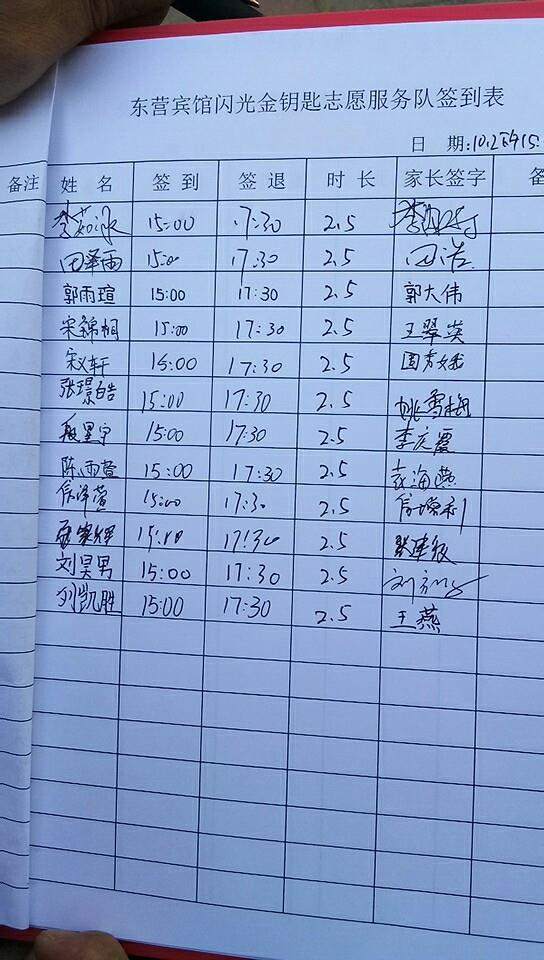 东营宾馆闪光金钥匙志愿服务队签到表
日 期:10.2 15:
备注 姓 名 签 到 签 退 时 长 家长签字 备
李茹冰 15:00 17:30 2.5
田泽雨 15:00 17:30 2.5 田浩
郭雨瑄 15:00 17:30 2.5 郭大伟
宋锦桐 15:00 17:30 2.5 王翠英
15:00 17:30 2.5
张璟皓 15:00 17:30 2.5 姚雪梅
殷星宇 15:00 17:30 2.5 李庆霞
陈雨萱 15:00 17:30 2.5 袁海燕
侯泽萱 15:00 17:30 2.5 侯增利
15:00 17:30 2.5
刘昊男 15:00 17:30 2.5
刘凯胜 15:00 17:30 2.5 王燕